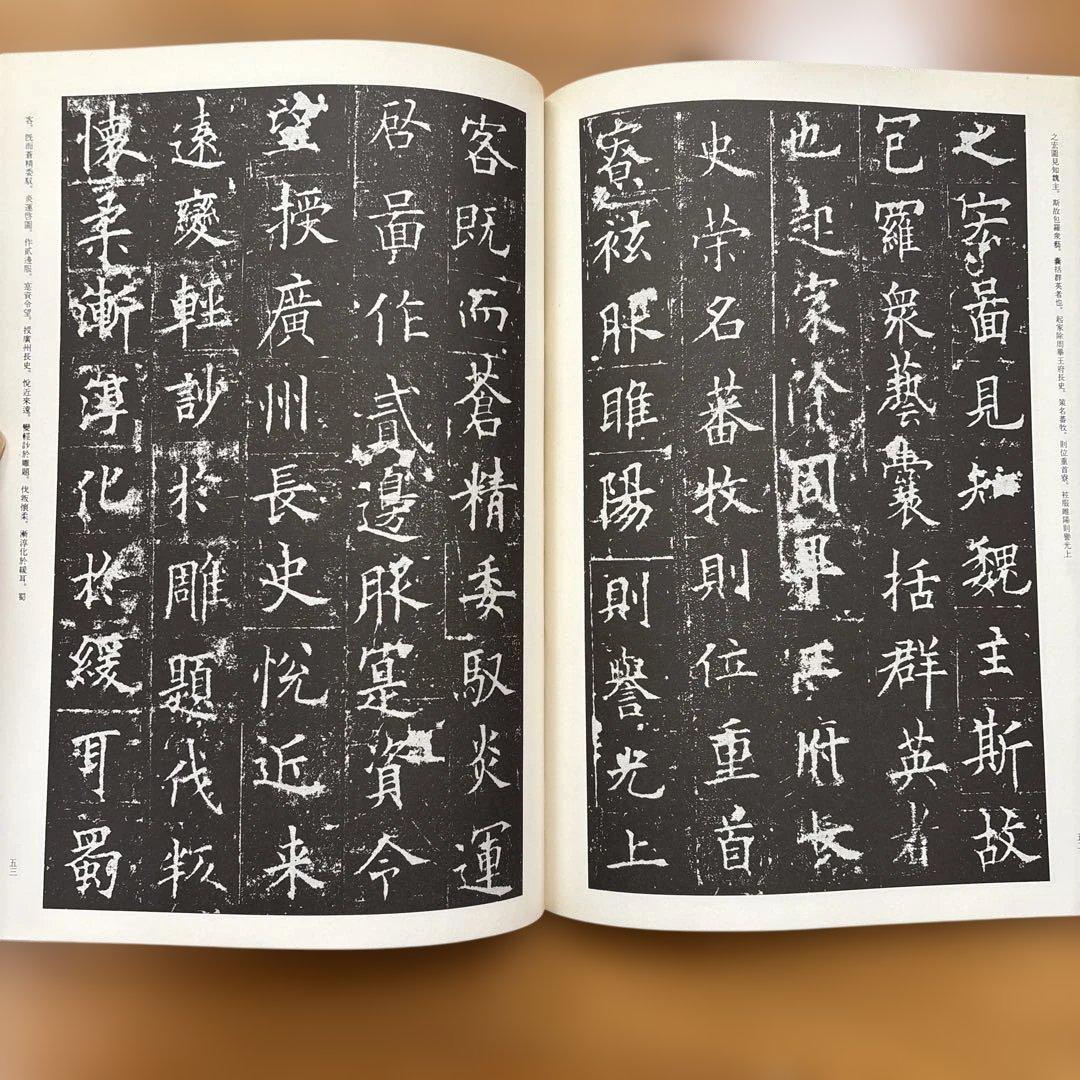 之宏圖見知魏主。斯故包羅衆藝。囊括群英者也。起家除周畢王府長史。策名蕃牧。則位重首寮。袨服睢陽則譽光上
之宏啚見知魏主斯故
包羅衆藝囊括群英者
也起家除周畢王府長
史策名蕃牧則位重首
寮袨服睢陽則譽光上
客既而蒼精委馭炎運
啓啚作貳邊服寔資令
望授廣州長史悅近来
遠變輕訬於雕題伐叛
懷柔漸淳化於緩耳蜀
客。既而蒼精委馭。炎運啓圖。作貳邊服。寔資令望。授廣州長史。悅近來遠。變輕訬於雕題。伐叛懷柔。漸淳化於緩耳。蜀
五三